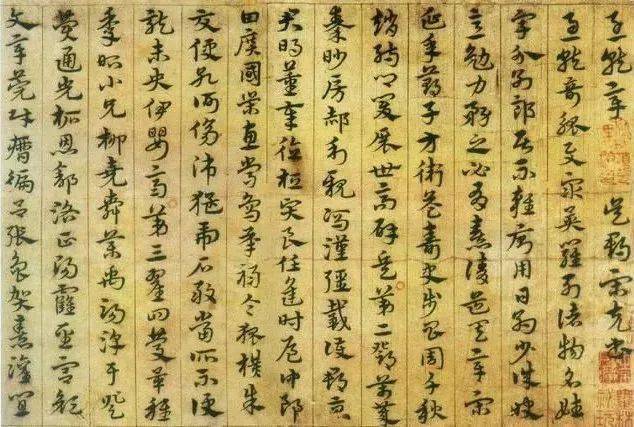 急就章 吳郡宋克書
急就奇觚與眾異羅列諸物名姓
字分別部居不雜廁用日約少誠快
意勉力務之必有憙請道其章宋
延年鄭子方衛益壽史步昌周千秋
趙孺卿爰展世高辟兵第二鄧萬歲
秦眇房郝利親馮漢彊戴護郡景
君明董奉德桓賢良任逢時侯仲郎
田廣國榮惠常烏承祿令狐橫朱
交便孔何傷師猛虎石敢當所不侵
龍未央伊嬰齊第三翟回慶畢稚
季昭小兄柳堯舜藥禹湯淳于登
費通光柘恩舒路正陽霍聖宮顏
文章莞財徧呂張魚賀憙灌宜